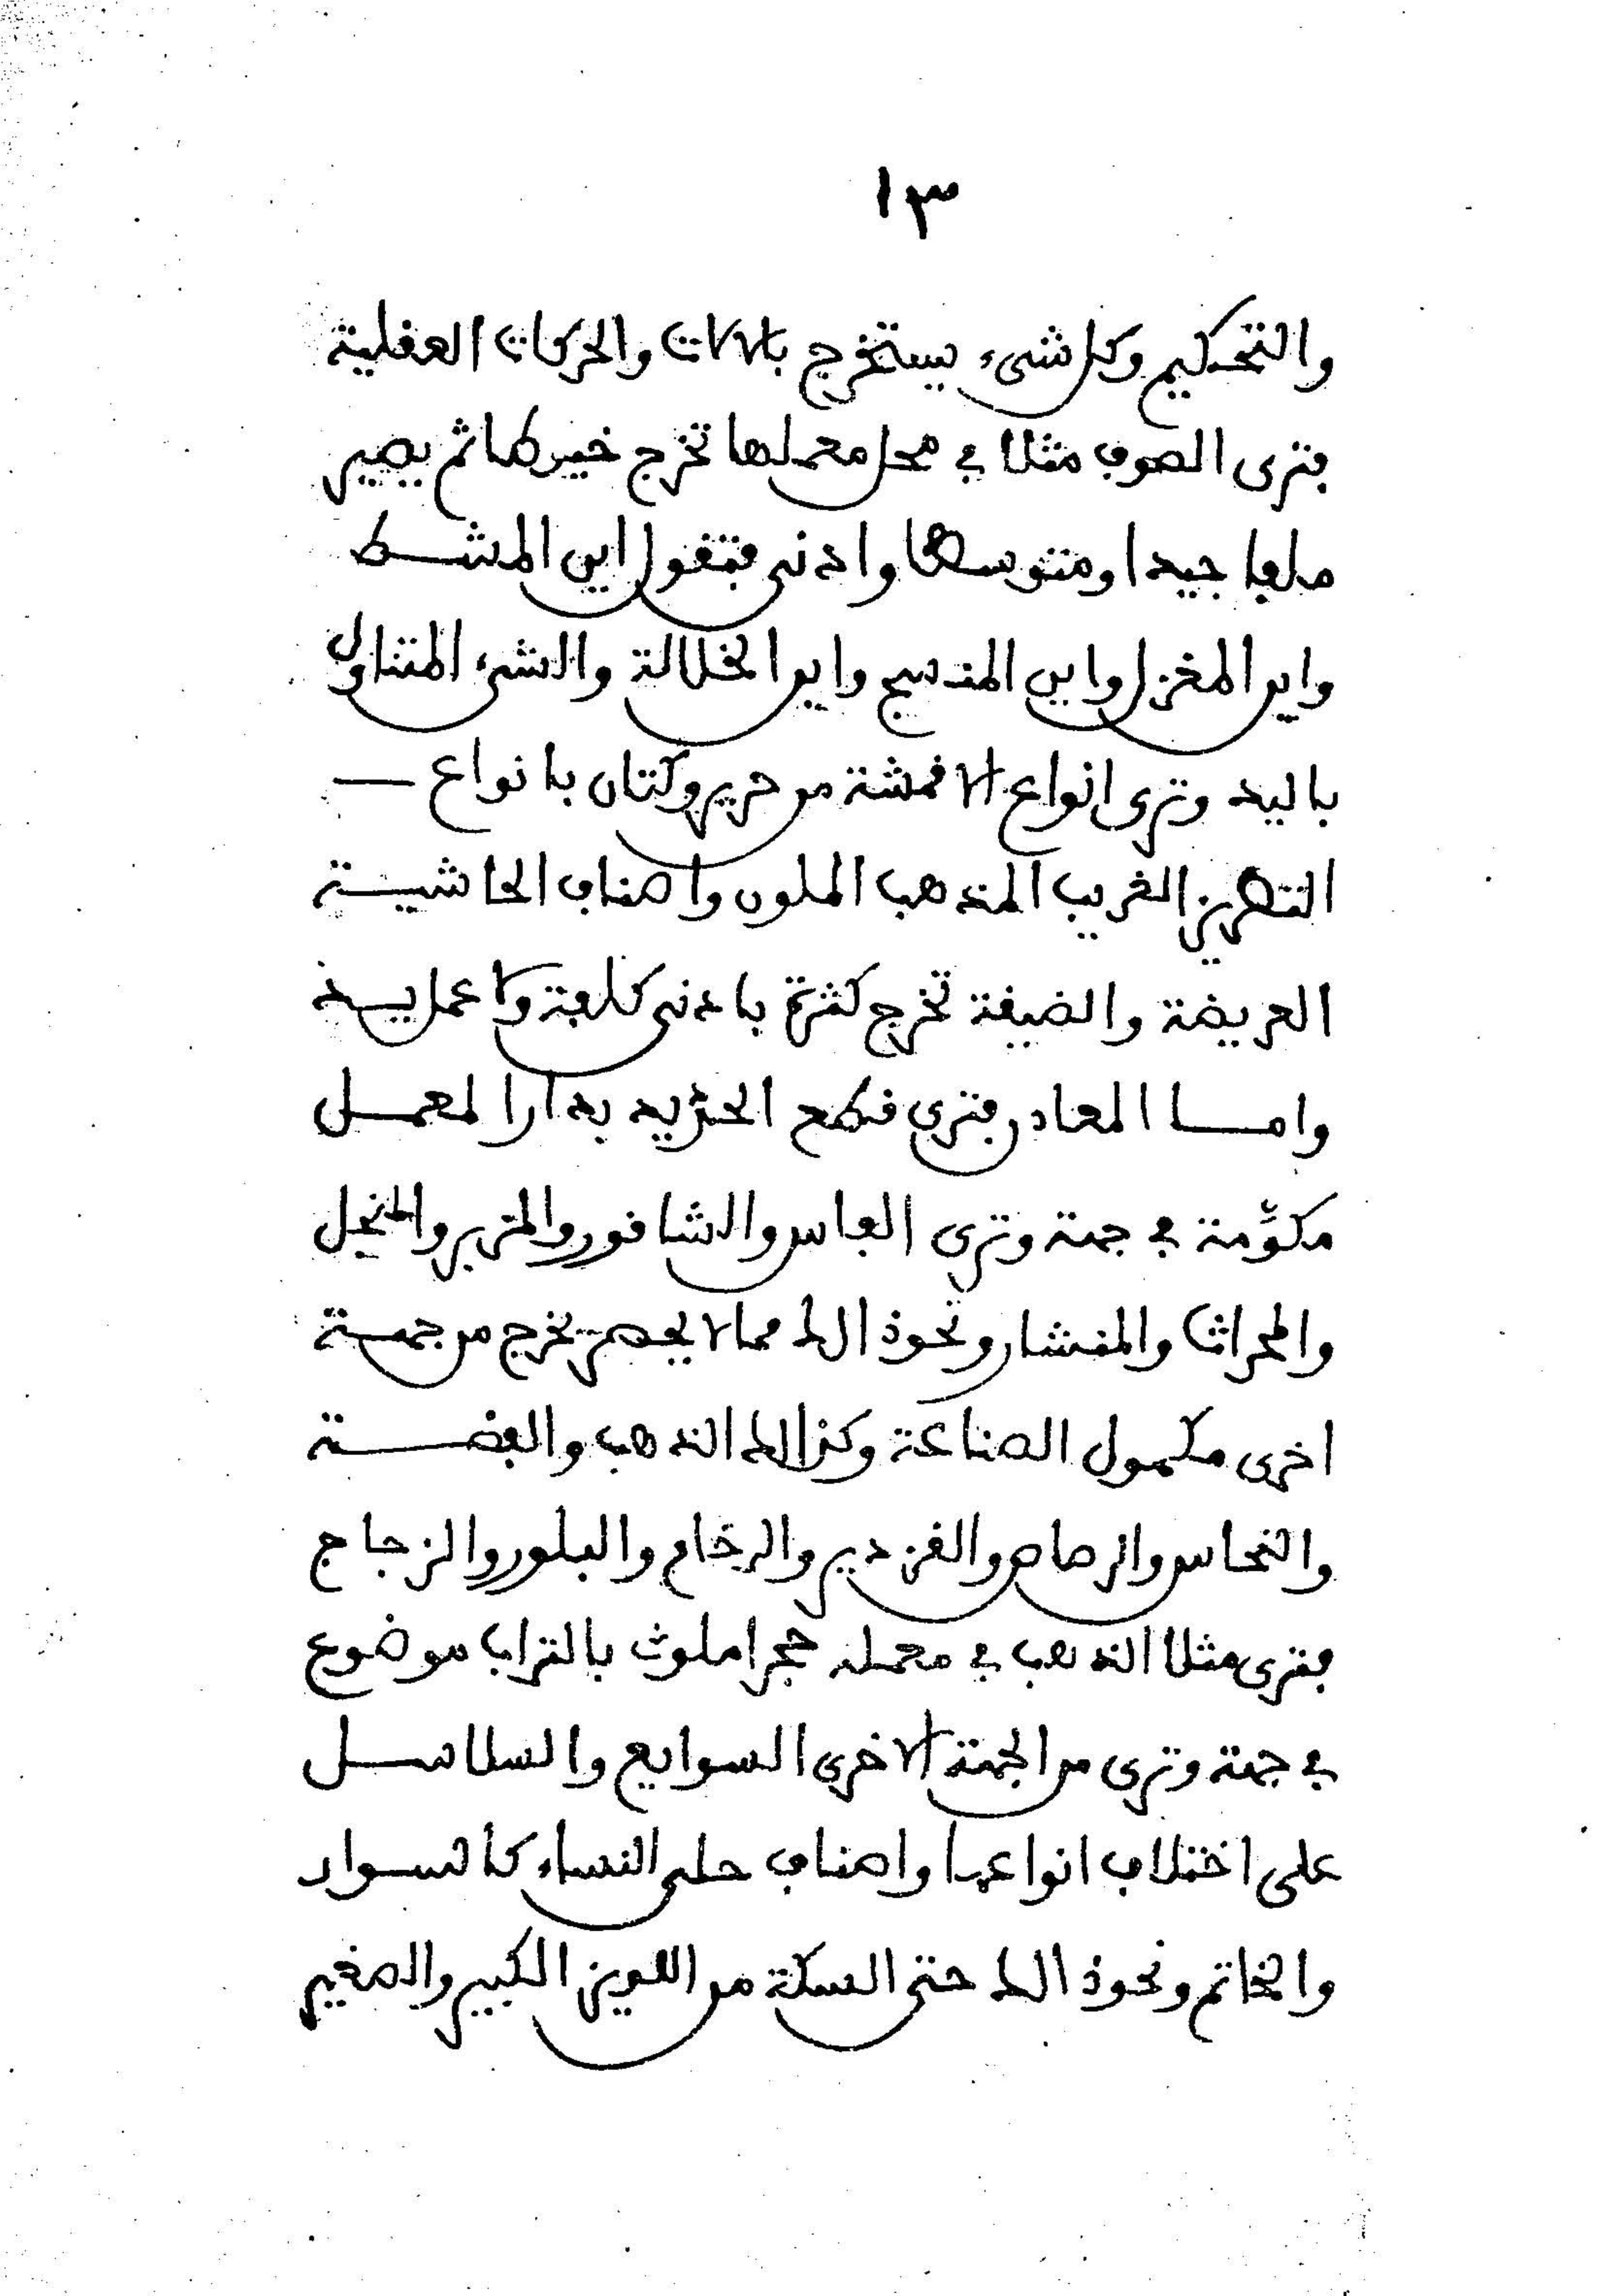 ١٣
والتحكيم وكل شىء يستخرج بالالات والحركات العقلية
فترى الصوف مثلا في محل معملها تخرج خيوطا ثم يصير
ملفا جيدا ومتوسطا وادنى فتقول اين المشط
واين المغزل واين المنسج واين الخلالة والشىء المتناول
باليد وترى انواع الاقمشة من حرير وكتان بانواع
التطريز الغريب المذهب الملون واصناف الحاشية
العريضة والضيقة تخرج كثرة بادنى كلفة ولا عمل يد
وامـا المعادن فترى قطع الحديد بدار المعمـل
مكوَّمة في جهة وترى الفاس والشاقور والمزبر والمنجل
والمحراث والمنشار ونحو ذالك مما لا يحصر تخرج من جهة
اخرى مكمول الصناعة وكذالك الذهب والفضة
والنحاس والرصاص والقزدير والرخام والبلور والزجاج
فترى مثلا الذهب في معمله حجرا ملوث بالتراب موضوع
في جهة وترى من الجهة الاخرى السوايع والسلاسل
على اختلاف انواعها واصناف حلى النساء كالسوار
والخاتم ونحو ذالك حتى السكة من اللويز الكبير والصغير